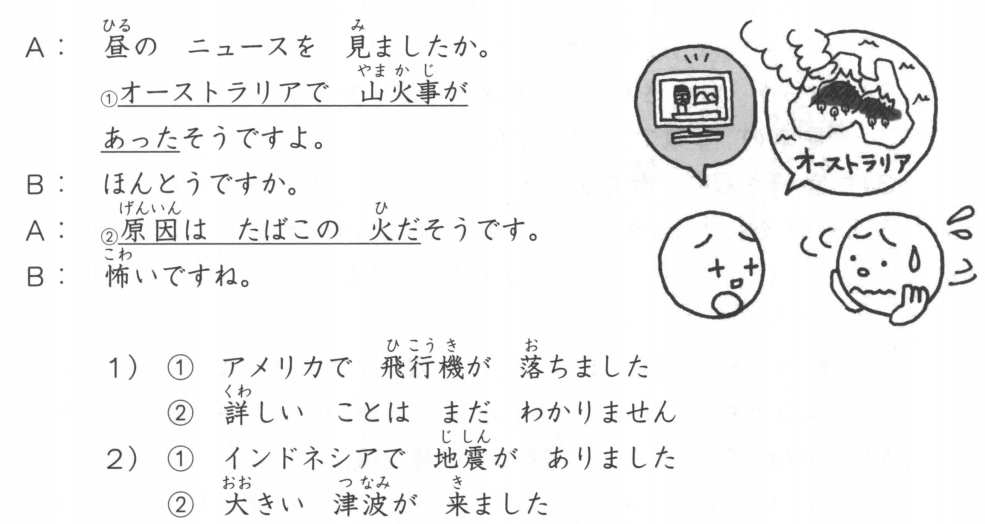 A： 昼の ニュースを 見ましたか。
①オーストラリアで 山火事が
あったそうですよ。
B： ほんとうですか。
A： ②原因は たばこの 火だそうです。
B： 怖いですね。
オーストラリア
1） ① アメリカで 飛行機が 落ちました
② 詳しい ことは まだ わかりません
2） ① インドネシアで 地震が ありました
② 大きい 津波が 来ました